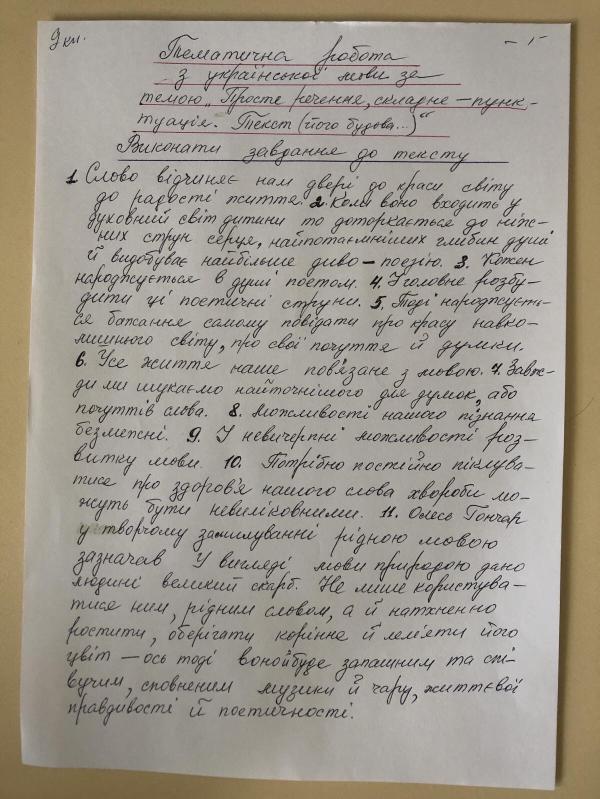 9 кл.
– 1 –
Тематична робота
з української мови за
темою „Просте речення, складне – пунк-
туація. Текст (його будова...)“
Виконати завдання до тексту
1 Слово відчиняє нам двері до краси світу
до радості життя. 2. Коли воно входить у
духовний світ дитини то доторкається до ніж-
них струн серця, найпотаємніших глибин душі
й видобуває найбільше диво – поезію. 3. Кожен
народжується в душі поетом. 4. Головне розбу-
дити ці поетичні струни. 5. Тоді народжуєть-
ся бажання самому повідати про красу навко-
лишнього світу, про свої почуття й думки.
6. Усе життя наше пов'язане з мовою. 7. Завж-
ди ми шукаємо найточнішого для думок, або
почуттів слова. 8. Можливості нашого пізнання
безмежні. 9. І невичерпні можливості роз-
витку мови. 10. Потрібно постійно піклува-
тися про здоров'я нашого слова хвороби мо-
жуть бути невиліковними. 11. Олесь Гончар
у творчому замилуванні рідною мовою
зазначав У вигляді мови природою дано
людині великий скарб. Не лише користува-
тися ним, рідним словом, а й натхненно
ростити, оберігати коріння й леліяти його
цвіт – ось тоді воно й буде запашним та спі-
вучим, сповненим музики й чару, життєвої
правдивості й поетичності.